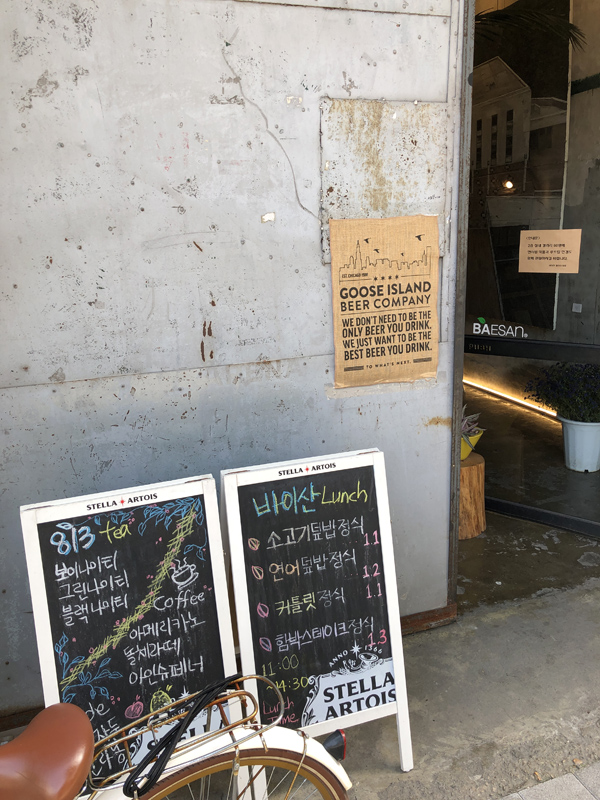 EST. CHICAGO 1988
GOOSE ISLAND
BEER COMPANY
WE DON'T NEED TO BE THE
ONLY BEER YOU DRINK.
WE JUST WANT TO BE THE
BEST BEER YOU DRINK.
TO WHAT'S NEXT.
BAESAN
STELLA ARTOIS
813 tea
보이나이티
그린나이티
블랙나이티
Coffee
아메리카노
똘체라떼
아인슈페너
de
STELLA ARTOIS
바이산 Lunch
소고기덮밥정식 1.1
연어덮밥정식 1.2
커틀릿정식 1.1
함박스테이크정식 1.3
11:00
~14:30
Lunch
Time
ANNO 1366
STELLA
ARTOIS